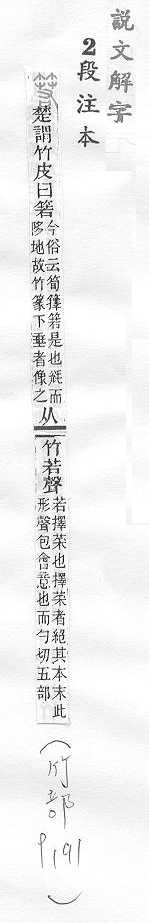 說文解字
2段注本
箬
楚謂竹皮曰箬
今俗云筍籜箬是也毦而
陊地故竹篆下垂者像之
从
竹若聲
若擇菜也擇菜者絕其本末此
形聲包會意也而勺切五部
(竹部 P191)